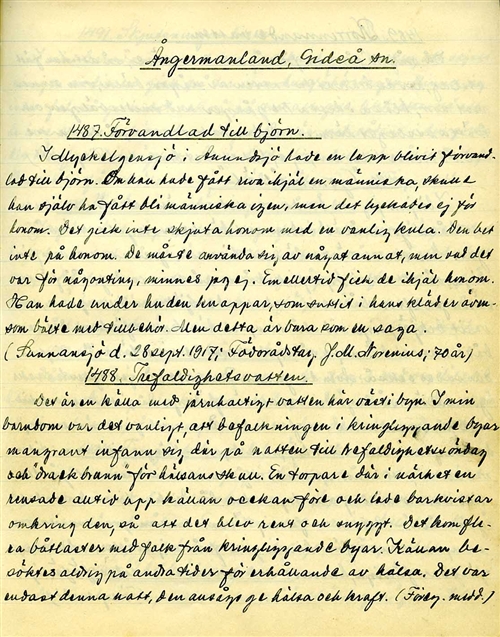 Ångermanland, Gideå sn.
1487. Förvandlad till björn.
I Myckelgensjö i Anundsjö hade en lapp blivit förvand-
lad till björn. Om han hade fått riva ihjäl en människa, skulle
han själv ha fått bli människa igen, men det lyckades ej för
honom. Det gick inte skjuta honom med en vanlig kula. Den bet
inte på honom. De måste använda sig av något annat, men vad det
var för någonting, minnes jag ej. Emellertid fick de ihjäl honom.
Han hade under huden knappar, som suttit i hans kläder även-
som bälte med tillbehör. Men detta är bara som en saga.
(Sunnansjö d. 28 sept. 1917; Födorådstag. J.M. Norenius; 70 år)
1488. Trefaldighetsvatten.
Det är en källa med järnhaltigt vatten här väst i byn. I min
barndom var det vanligt, att befolkningen i kringliggande byar
mangrant infann sig där på natten till trefaldighetssöndag
och "drack brunn" för hälsans skull. En torpare där i närheten
rensade alltid upp källan veckan före och lade barkvistar
omkring den, så att det blev rent och snyggt. Det kom fle-
ra båtlaster med folk från kringliggande byar. Källan be-
söktes aldrig på andra tider för erhållande av hälsa. Det var
endast denna natt, den ansågs ge hälsa och kraft. (Föreg. medd.)